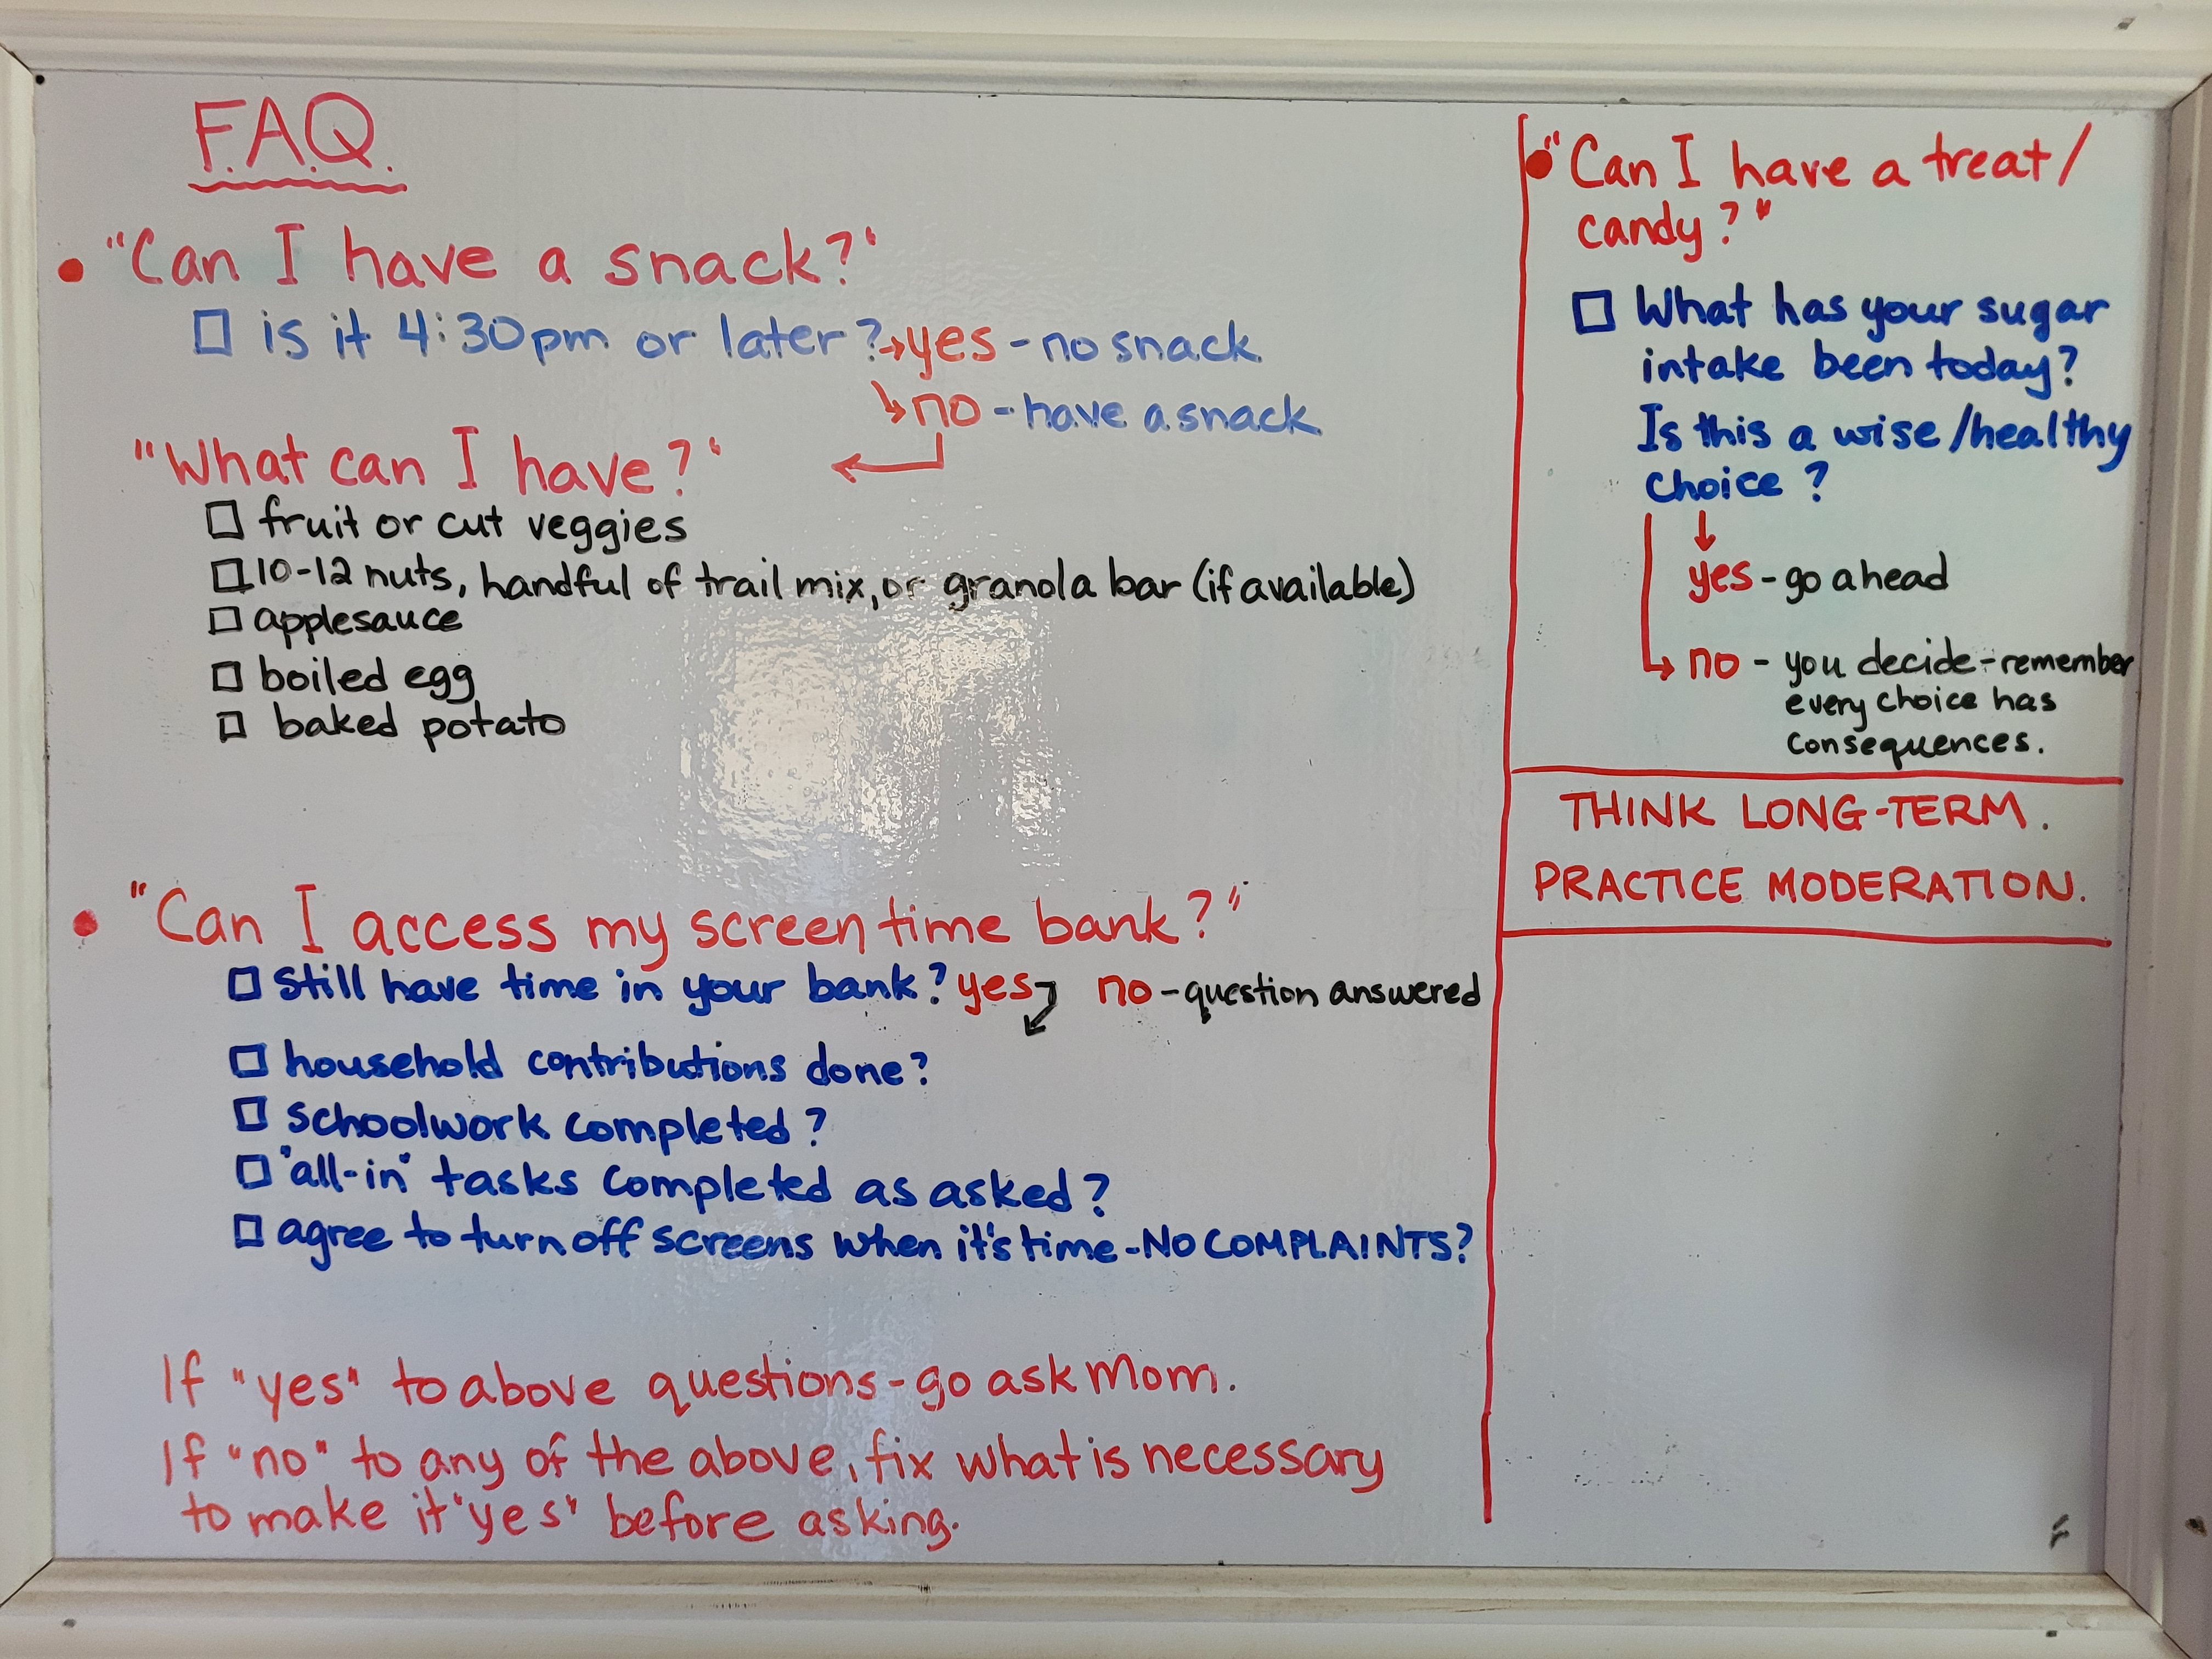 F.A.Q.
• "Can I have a snack?"
☐ is it 4:30pm or later? → yes - no snack
↳ no - have a snack
"What can I have?" ←
☐ fruit or cut veggies
☐ 10-12 nuts, handful of trail mix, or granola bar (if available)
☐ applesauce
☐ boiled egg
☐ baked potato
• "Can I access my screen time bank?"
☐ still have time in your bank? yes ↙ no - question answered
☐ household contributions done?
☐ schoolwork completed?
☐ "all-in" tasks completed as asked?
☐ agree to turn off screens when it's time - NO COMPLAINTS?
If "yes" to above questions - go ask Mom.
If "no" to any of the above, fix what is necessary
to make it "yes" before asking.
• "Can I have a treat/
candy?"
☐ What has your sugar
intake been today?
Is this a wise/healthy
choice?
↓
yes - go ahead
↳ no - you decide - remember
every choice has
consequences.
THINK LONG-TERM.
PRACTICE MODERATION.